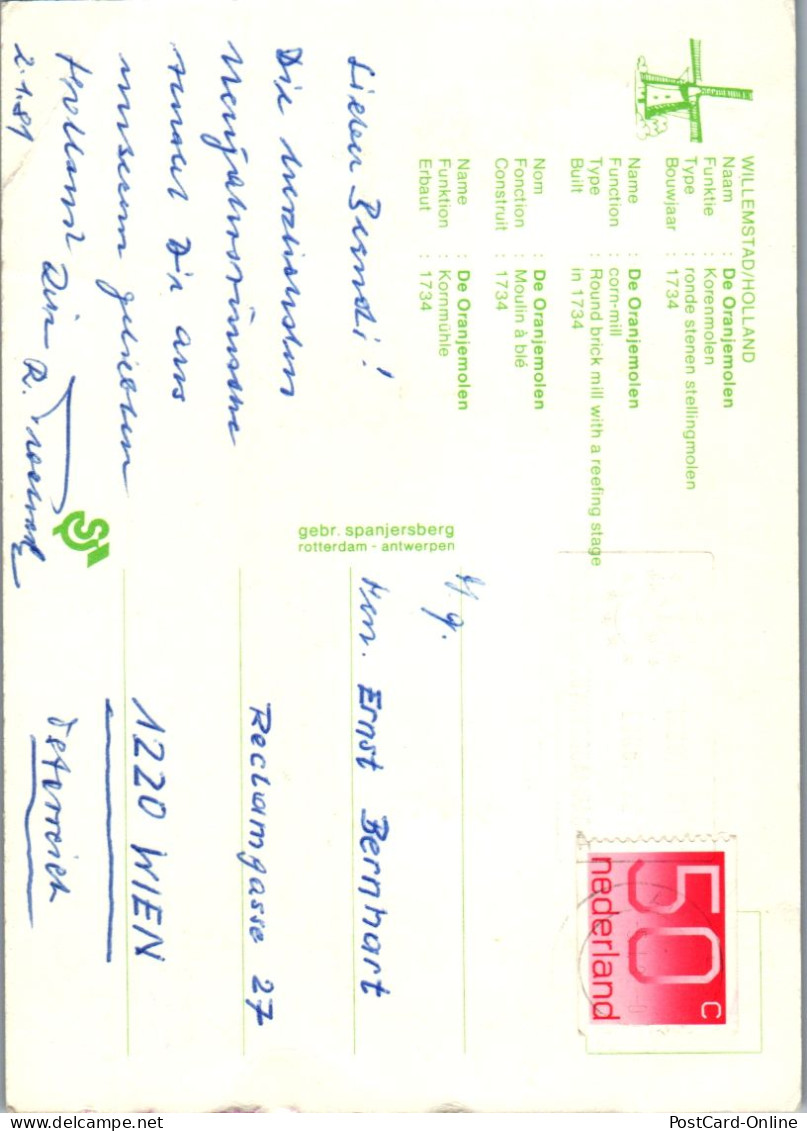 WILLEMSTAD/HOLLAND
Naam : De Oranjemolen
Funktie : Korenmolen
Type : ronde stenen stellingmolen
Bouwjaar : 1734
Name : De Oranjemolen
Function : corn-mill
Type : Round brick mill with a reefing stage
Built : in 1734
Nom : De Oranjemolen
Fonction : Moulin à blé
Construit : 1734
Name : De Oranjemolen
Funktion : Kornmühle
Erbaut : 1734
Lieber Berndi!
Die herzlichsten
Neujahrswünsche
sendet Dir aus
unserem geliebten
Holland Dein R.
2.1.81
gebr. spanjersberg
rotterdam - antwerpen
Hrn. Ernst Bernhart
Reclamgasse 27
1220 WIEN
Österreich
50 c
nederland
PostCard-Online